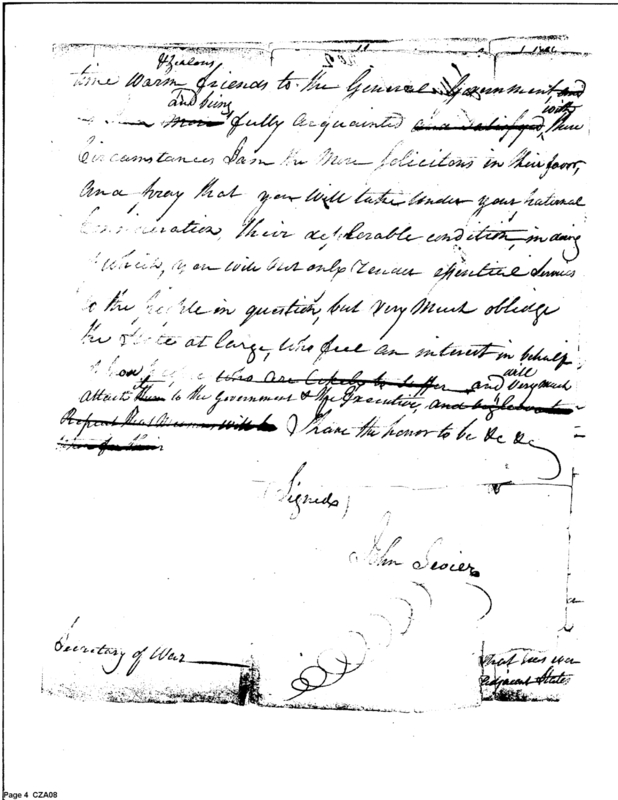 & Zealous
time warm friends to the General Government and
and being with
more fully acquainted and satisfyed, their
Circumstances I am the more Solicitous in their favor,
and pray that you will take under your national
Consideration, their deplorable condition, in doing
which, you will not only render essential Services
to the people in question, but very much oblige
the State at large, who feel an interest in behalf
people who are likely to suffer and will very much
attach them to the Government & the Executive, and
Repeat that will be I have the honor to be &c &c
(Signed)
John Sevier
Secretary of War
that
adjacent States
Page 4 CZA08